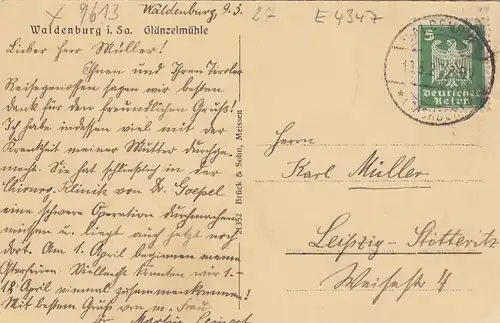 x 9613
Waldenburg, 9.3.
27
E 4347
Waldenburg i. Sa. Glänzelmühle
Lieber Herr Müller!
Ihnen und Ihren Tiroler
Reisegenossen sagen wir besten
Dank für den freundlichen Gruß!
Ich habe indessen viel mit der
Krankheit meiner Mutter durchge-
macht. Sie hat schließlich in der
Klinik von Dr. Goepel
eine schwere Operation durchmachen
müssen u. liegt auch jetzt noch
dort. Am 1. April beginnen meine
Osterferien. Vielleicht könnten wir 1.-
18. April einmal zusammenkommen!
Mit bestem Gruß von m. Frau
Martin
21352 Brück & Sohn, Meissen
5
Deutsches
Reich
Herrn
Karl Müller
Leipzig-Stötteritz
Weißestr. 4